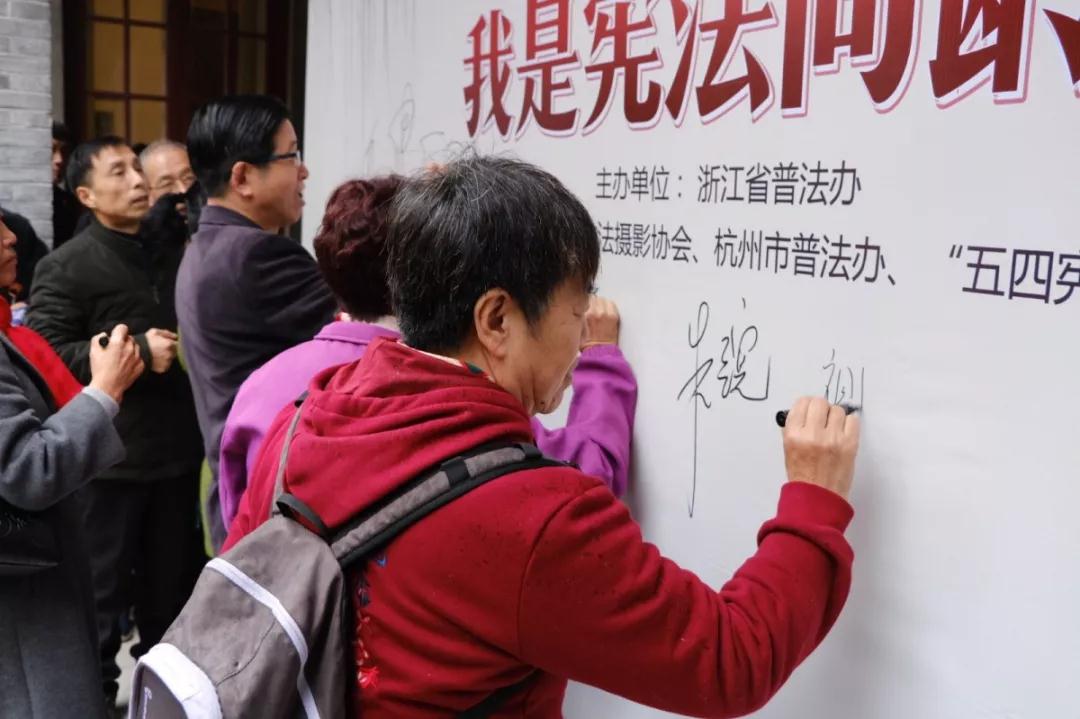 我是宪法问
主办单位：浙江省普法办
法摄影协会、杭州市普法办、 “五四宪